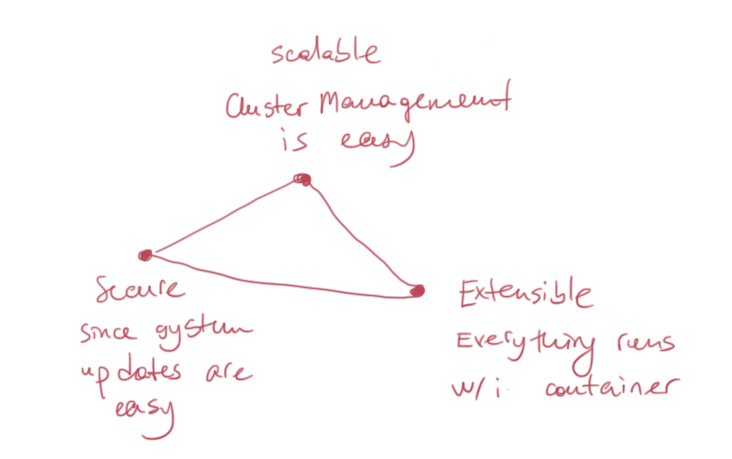 scalable
Cluster Management
is easy
Secure
since system
updates are
easy
Extensible
Everything runs
w/i container